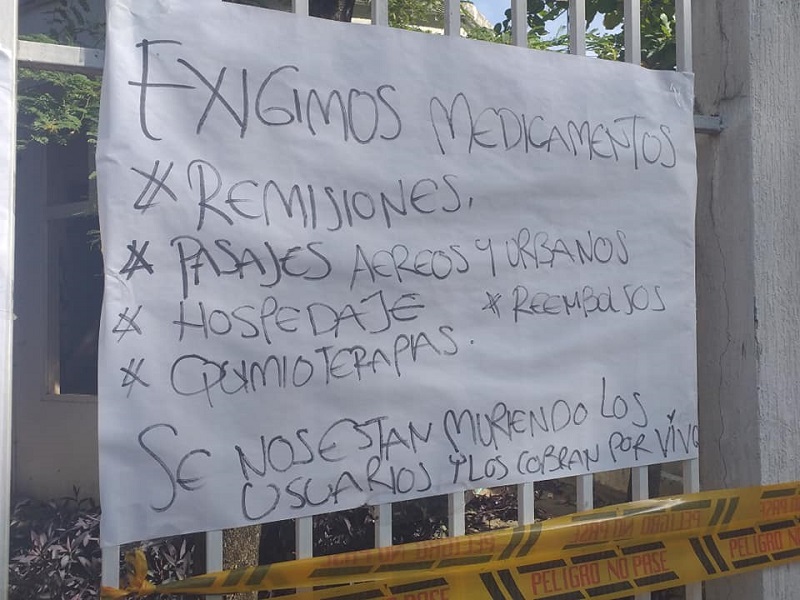 EXIGIMOS MEDICAMENTOS
* REMISIONES.
* PASAJES AEREOS Y URBANOS
* HOSPEDAJE * REEMBOLSOS
* QUMIOTERAPIAS.
SE NOS ESTAN MURIENDO LOS
USUARIOS Y LOS COBRAN POR VIVO
PELIGRO NO PASE
PELIGRO NO PASE